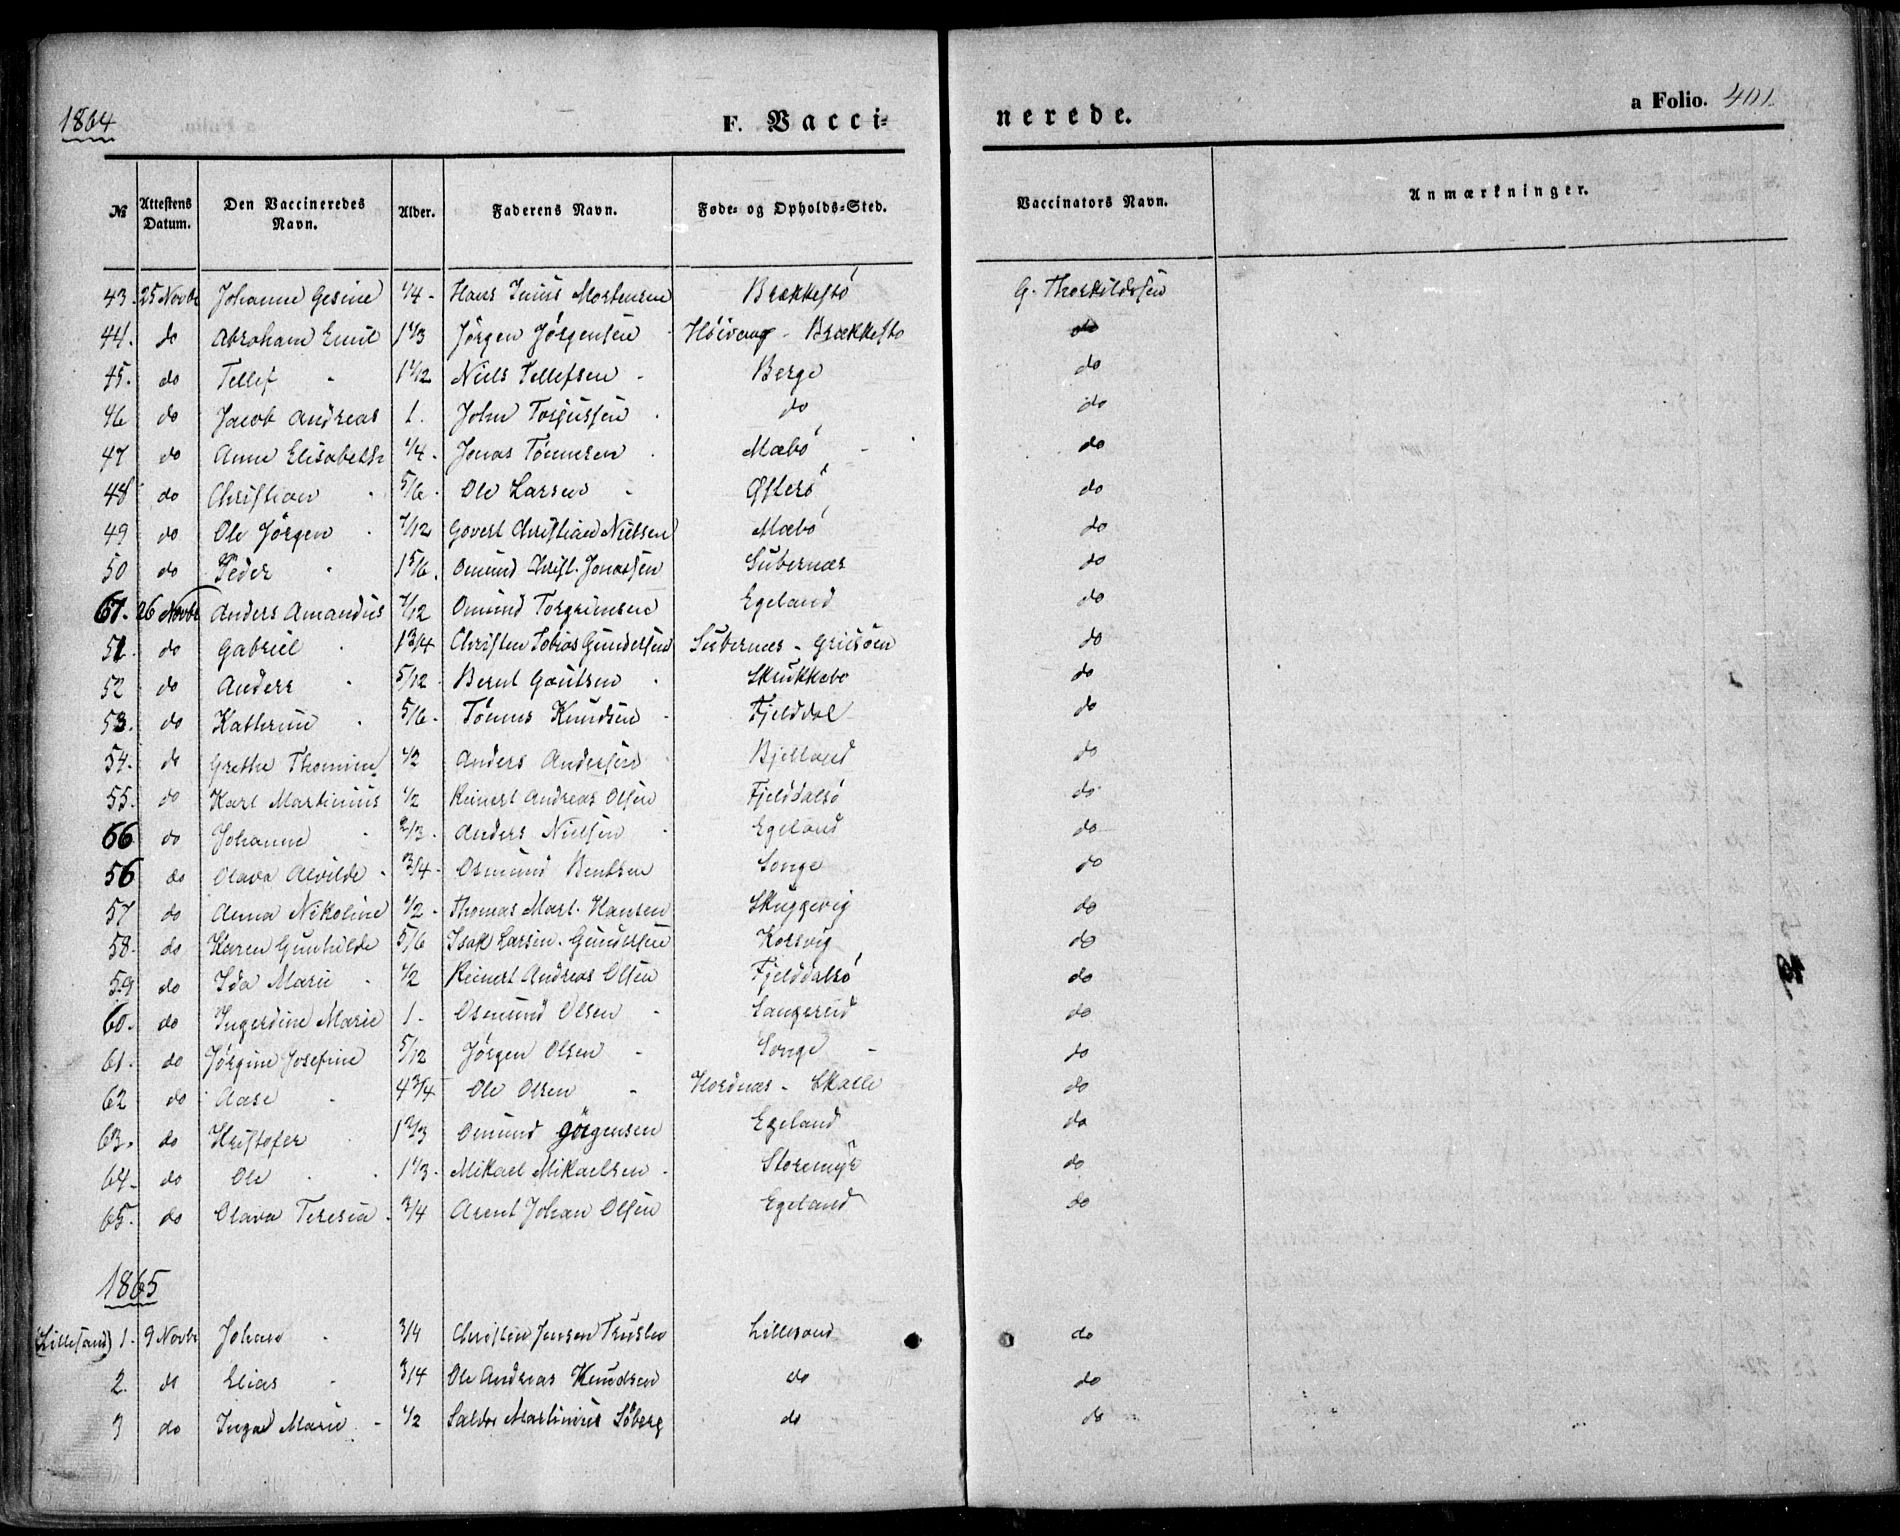 1864 F. Vacci- nerede. a Folio. 401.
№ Attestens Datum. Den Vaccineredes Navn. Alder. Faderens Navn. Føde- og Opholds-Sted. Vaccinators Navn. Anmærkninger.
43. 25 Novbr Johanne Gesine 1/4 - Hans Mortensen Brækkestö G. Thorkildsen
44. do Abraham Emil 1 1/3 Jörgen Jørgensen - Høivaag - Brækkestö do
45. do Tellef - 1 1/12 Niels Tellefsen - Berge do
46 do Jacob Andreas 1. John Torjussen . do do
47 do Anne Elisabeth 1/4. Jonas Tønnesen . Mæbö - do
48 do Christian - 5/6. Ole Larsen - Østerö do
49 do Ole Jörgen . 7/12 Govert Christian Nielsen Mæbö do
50 do Peder - 1 5/6. Omund Christ. Jonassen Subernæs do
67. 26 Novbr Anders Amandus 7/12 Omund Torgrimsen Egeland do
51. do Gabriel . 1 3/4 Christen Tobias Gundersen Subernæs - Griisöen do
52 do Anders - 5/12 - Bernt Goutsen . Skrukkebo do
53. do Kathrine . 5/6. Tönnes Knudsen - Fjelddal do
54. do Grethe Thomine 1/2 Anders Andersen . Bjelland do
55. do Karl Martinius 1/2 Reinert Andreas Olsen Fjelddalsö do
66 do Johanne - 2/3. Anders Nielsen . Egeland do
56 do Olava Alvilde . 3/4. Osmund Bentsen Songe do
57 do Anna Nikoline 1/2 - Thomas Mart. Hansen Skuggevig do
58. do Karen Gunhilde 5/6 Isak Larsen Gundersen Korsvig do
59 do Ida Marie . 1/2 Reinert Andreas Olsen Fjelddalsö do
60. do Ingerdine Marie 1. Osmund Olsen - Sangereid do
61. do Jørgine Josefine 5/12 Jörgen Olsen - Songe - do
62 do Aase - 4 3/4 Ole Olsen - Hordnæs - Skalle do
63. do Kristofer . 1 2/3 Omund Jörgensen Egeland do
64. do Ole . 1 1/3. Mikael Mikaelsen. Storemyr do
65. do Olava Teresia . 3/4 Arent Johan Olsen Egeland do
1865
(Lillesand) 1. 9 Novbr Johan - 3/4 Christen Jensen Lillesand do
2. do Elias - 3/4 Ole Andreas Knudsen do do
3 do Inga Marie - 1/2 Martinius Söberg do do